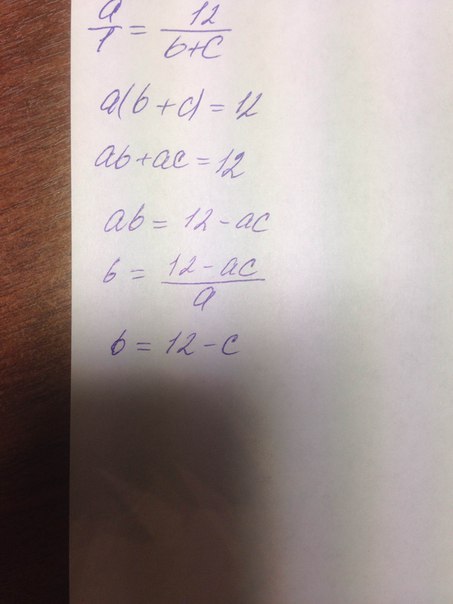 a/1 = 12/(b+c)
a(b+c)=12
ab+ac=12
ab=12-ac
b=(12-ac)/a
b=12-c